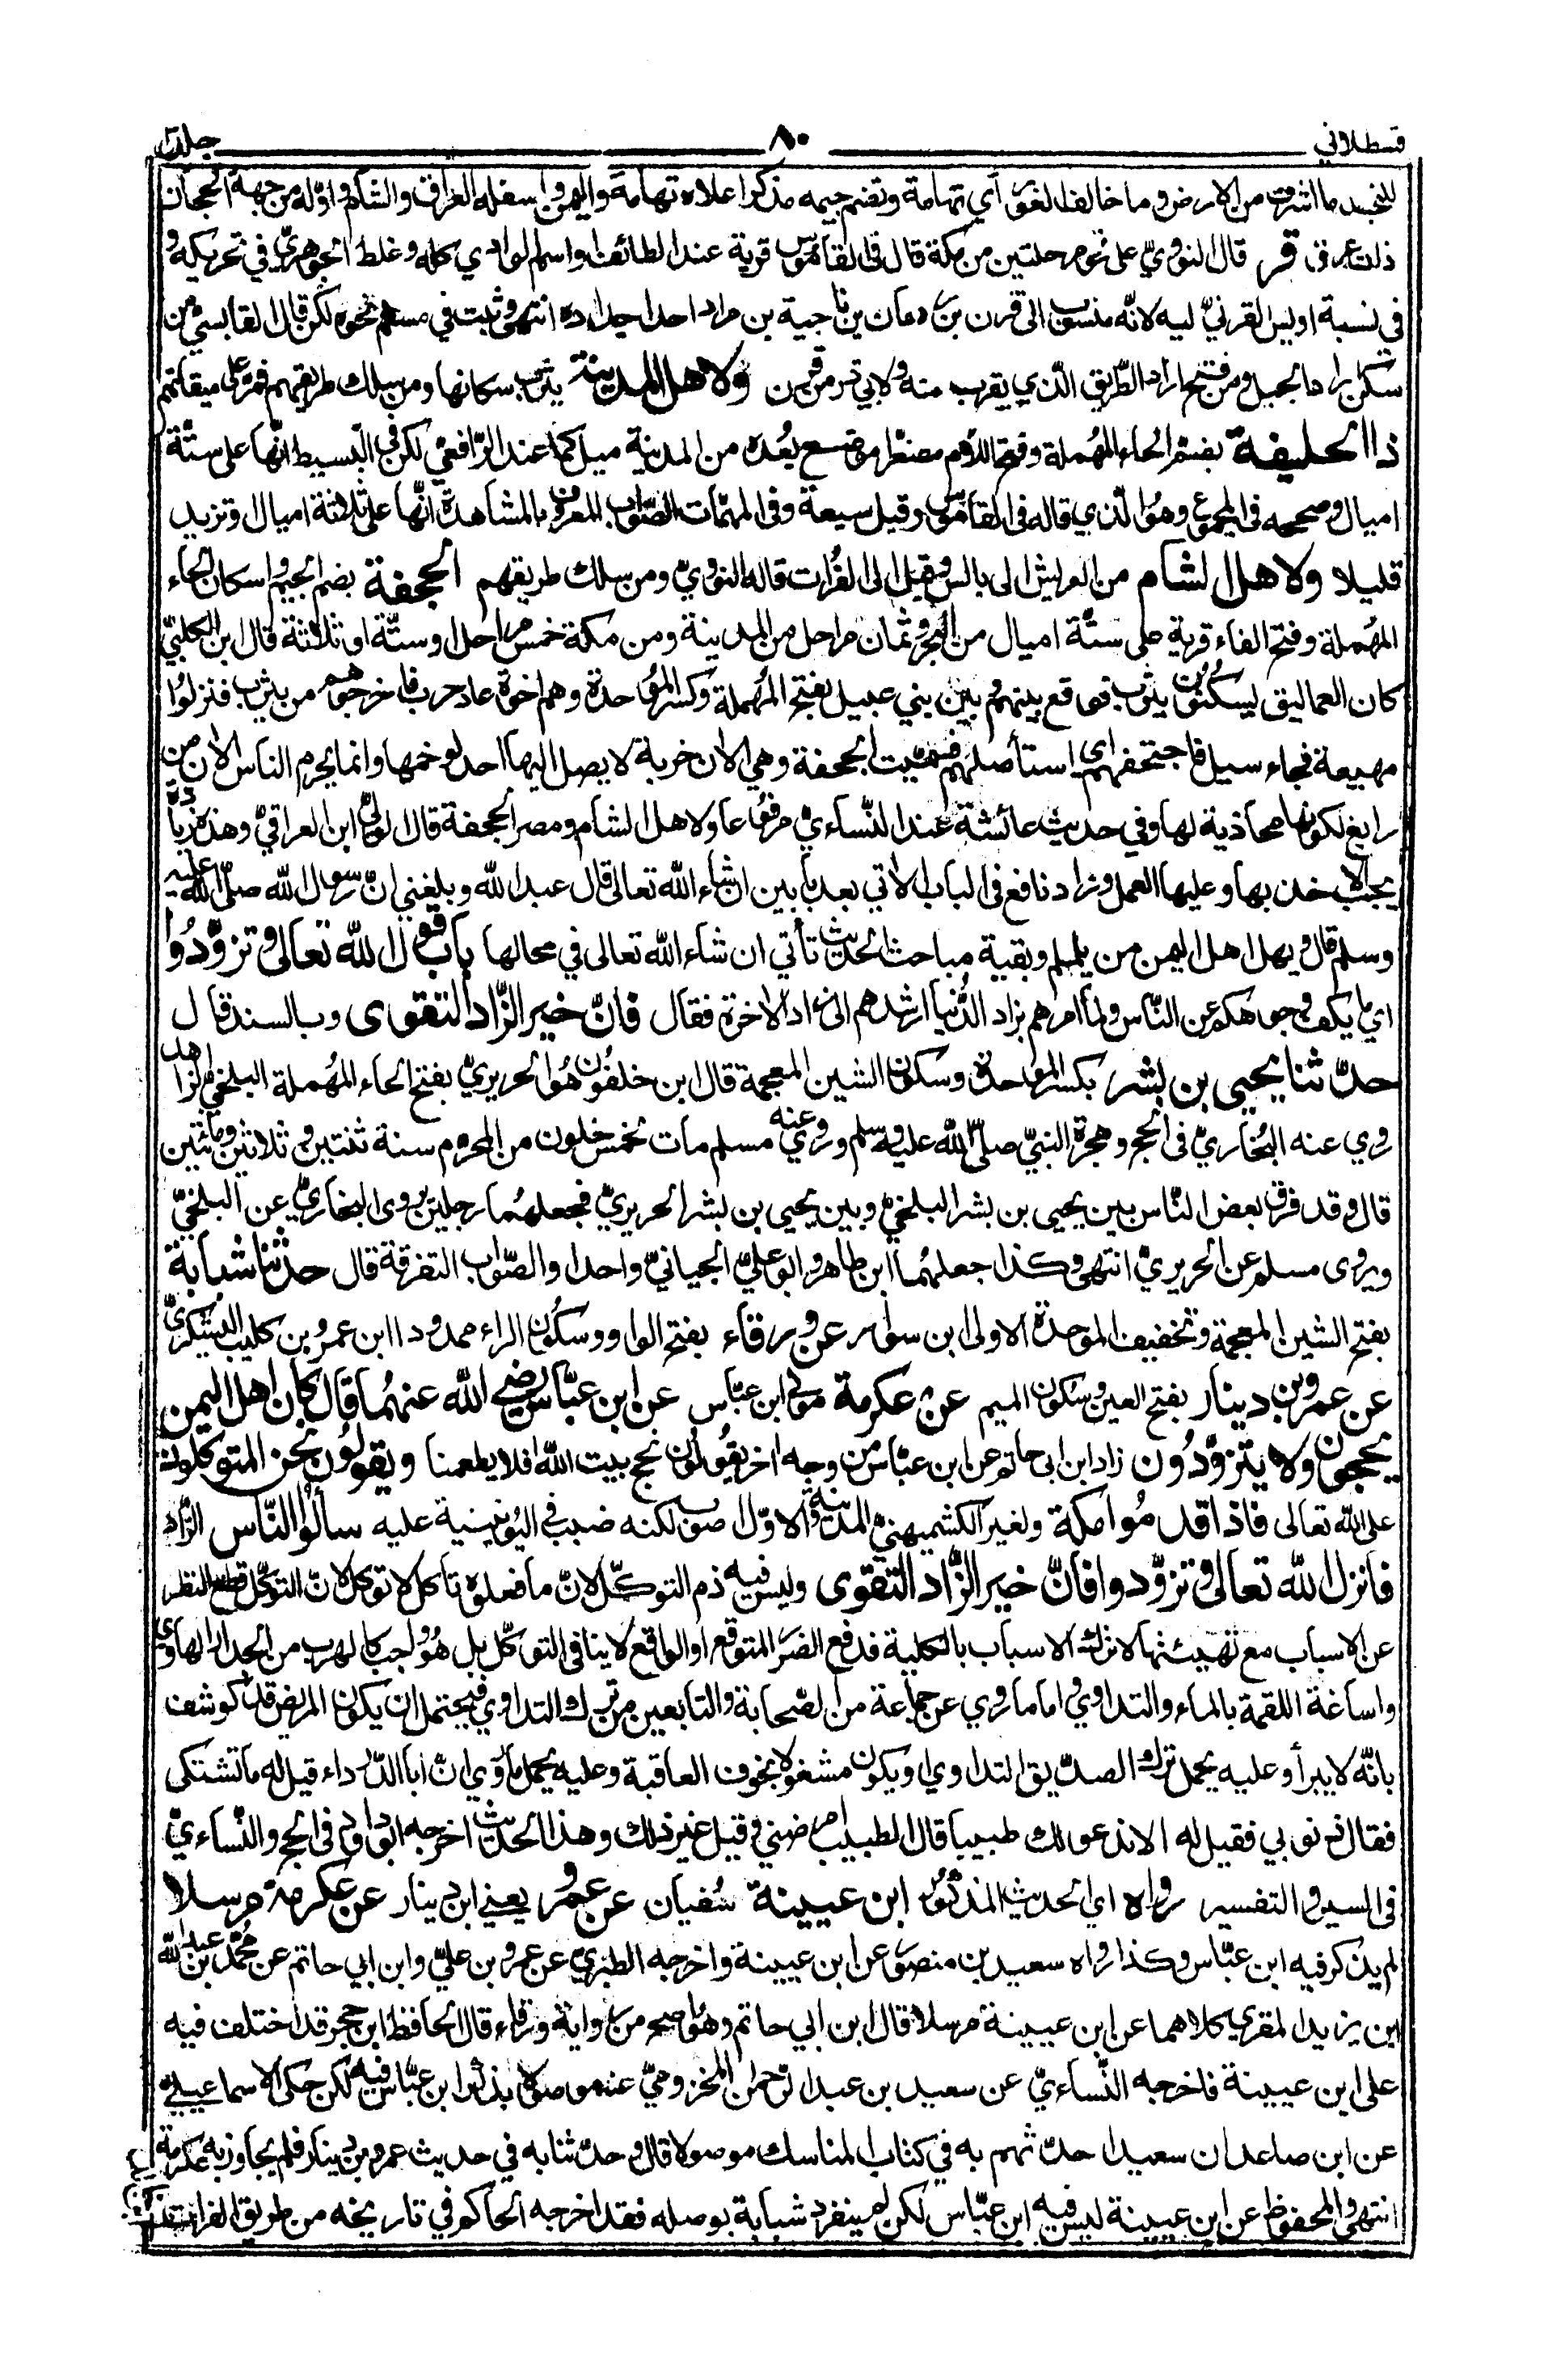 قسطلاني ٨٠ جلد
النجد ما اشرف من الارض وما خالف الغور اي تهامة وتضم جيمه مذكر اعلاه تهامة واليمن واسفله العراق والشام واوله من جهة الحجاز
ذات عرق قر قال النووي على نحو مرحلتين من مكة قال في القاموس قرية عند الطائف واسم الوادي كله وغلط الجوهري في تحريكه و
في نسبة اويس القرني اليه لانه منسوب الى قرن بن ردمان بن ناجية بن مراد احد اجداده انتهى وثبت في مسلم نحوه لكن قال القابسي من
سكن اراد الجبل ومن فتح اراد الطريق الذي يقرب منه ولابي ذر من قرن ولاهل المدينة يثرب سكانها ومن سلك طريقهم فمر على ميقاتهم
ذا الحليفة بضم الحاء المهملة وفتح اللام مصغرا موضع بعده من المدينة ميل كما عند الرافعي لكن في البسيط انها على ستة
اميال وصححه في المجموع وهو الذي قاله في القاموس وقيل سبعة وفي المهمات الصواب المعروف بالمشاهدة انها على ثلاثة اميال وتزيد
قليلا ولاهل الشام من العريش الى بالس وقيل الى الفرات قاله النووي ومن سلك طريقهم الجحفة بضم الجيم واسكان الحاء
المهملة وفتح الفاء قرية على ستة اميال من البحر وثمان مراحل من المدينة ومن مكة خمس مراحل او ستة او ثلاثة قال ابن الكلبي
كان العماليق يسكنون يثرب فوقع بينهم وبين بني عبيل بفتح المهملة وكسر الموحدة وهم اخوة عاد حرب فاخرجوهم من يثرب فنزلوا
مهيعة فجاء سيل فاجتحفهم اي استأصلهم فسميت الجحفة وهي الان خربة لا يصل اليها احد لوخمها وانما يحرم الناس الان من
رابغ لكونها محاذية لها وفي حديث عائشة عند النساءي مرفوعا ولاهل الشام ومصر الجحفة قال الولي ابن العراقي وهذه زيادة
يجب الاخذ بها وعليها العمل وزاد نافع في الباب الاتي بعد بابين ان شاء الله تعالى قال عبد الله وبلغني ان رسول الله صلى الله عليه
وسلم قال ويهل اهل اليمن من يلملم وبقية مباحث الحديث تأتي ان شاء الله تعالى في محالها باب قول الله تعالى وتزودوا
اي ما يكف وجوهكم عن الناس ولما امرهم بزاد الدنيا ارشدهم الى زاد الاخرة فقال فان خير الزاد التقوى وبالسند قال
حدثنا يحيى بن بشر بكسر الموحدة وسكون الشين المعجمة قال ابن خلفون هو الحريري بفتح الحاء المهملة البلخي الزاهد
روي عنه البخاري في الحج وهجرة النبي صلى الله عليه وسلم وروى عنه مسلم مات لخمس خلون من المحرم سنة ثنتين وثلاثين ومائتين
قال وقد فرق بعض الناس بين يحيى بن بشر البلخي وبين يحيى بن بشر الحريري فجعلهما رجلين يروى البخاري عن البلخي
ويروى مسلم عن الحريري انتهى وكذا جعلهما ابن طاهر وابو علي الجياني واحدا والصواب التفرقة قال حدثنا شبابة
بفتح الشين المعجمة وتخفيف الموحدة الاولى ابن سوار عن ورقاء بفتح الواو وسكون الراء ممدودا ابن عمر بن كليب اليشكري
عن عمرو بن دينار بفتح العين وسكون الميم عن عكرمة مولى ابن عباس عن ابن عباس رضي الله عنهما قال كان اهل اليمن
يحجون ولا يتزودون زاد ابن ابي حاتم عن ابن عباس من وجه اخر يقولون نحج بيت الله افلا يطعمنا ويقولون نحن المتوكلون
على الله تعالى فاذا قدموا مكة ولغير الكشميهني المدينة والاول صوب لكنه ضبب في اليونينية عليه سألوا الناس الزاد
فانزل الله تعالى وتزودوا فان خير الزاد التقوى وليس فيه ذم التوكل لان ما فعلوه تأكل لا توكل لان التوكل قطع النظر
عن الاسباب مع تهيئتها لا ترك الاسباب بالكلية فدفع الضرر المتوقع او الواقع لا ينافى التوكل بل هو واجب كالهرب من الجدار الهاوي
واساغة اللقمة بالماء والتداوي واما ما روي عن جماعة من الصحابة والتابعين من ترك التداوي فيحتمل ان يكون المريض قد كوشف
بانه لا يبرأ وعليه يحمل ترك الصديق التداوي او يكون مشغولا بخوف العاقبة وعليه يحمل ما روي ان ابا الدرداء قيل له ما تشتكى
فقال ذنوبي فقيل له الا ندعو لك طبيبا قال الطبيب امرضني وقيل غير ذلك وهذا الحديث اخرجه ابو داود في الحج والنساءي
في السير والتفسير رواه اي الحديث المذكور ابن عيينة سفيان عن عمرو يعني ابن دينار عن عكرمة مرسلا
لم يذكر فيه ابن عباس وكذا رواه سعيد بن منصور عن ابن عيينة واخرجه الطبري عن عمرو بن علي وابن ابي حاتم عن محمد بن عبد الله
ابن يزيد المقري كلاهما عن ابن عيينة مرسلا قال ابن ابي حاتم وهو اصح من رواية ورقاء قال الحافظ ابن حجر وقد اختلف فيه
على ابن عيينة فاخرجه النساءي عن سعيد بن عبد الرحمن المخزومي عنه موصولا بذكر ابن عباس فيه لكن حكى الاسماعيلي
عن ابن صاعد ان سعيدا حدثهم به في كتاب المناسك موصولا قال وحدثنا به في حديث عمرو بن دينار فلم يجاوز به عكرمة
انتهى والمحفوظ عن ابن عيينة ليس فيه ابن عباس لكن لم ينفرد شبابة بوصله فقد اخرجه الحاكم في تاريخه من طريق الفرات